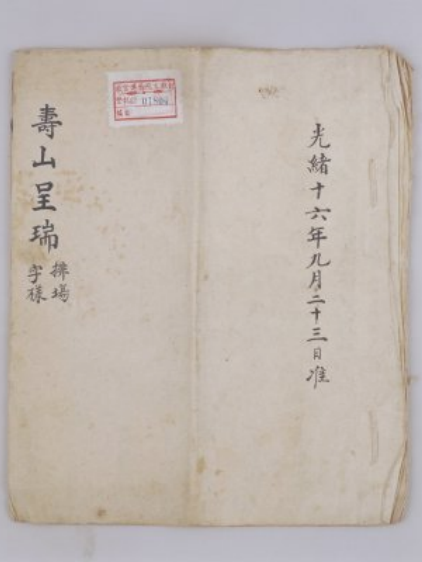 光緒十六年九月二十三日准
壽山呈瑞
排場
字樣
01804